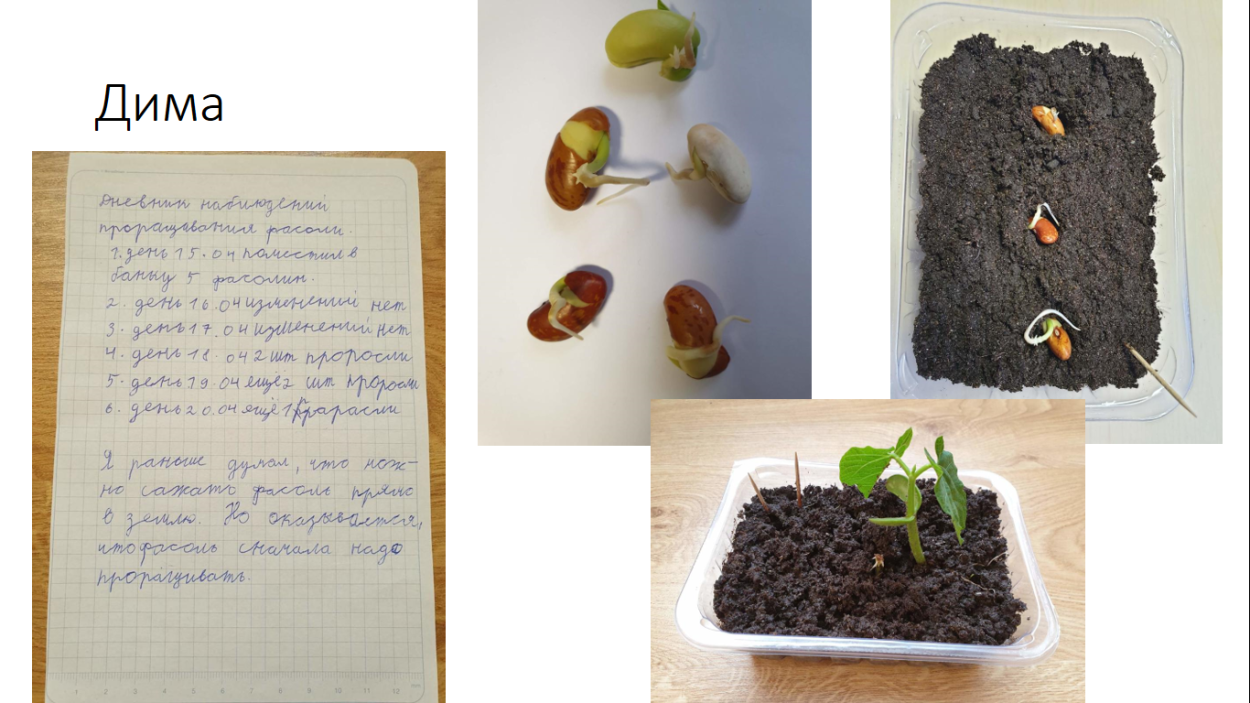 Дима
Дневник наблюдений
проращивания фасоли.
1. день 15.04 поместил в
банку 5 фасолин.
2. день 16.04 изменений нет
3. день 17.04 изменений нет
4. день 18.04 2 шт проросли
5. день 19.04 ещё 2 шт проросли
6. день 20.04 ещё 1 прарасли
Я раньше думал, что мож-
но сажать фасоль прямо
в землю. Но оказывается,
что фасоль сначала надо
проращивать.
1 2 3 4 5 6 7 8 9 10 11 12